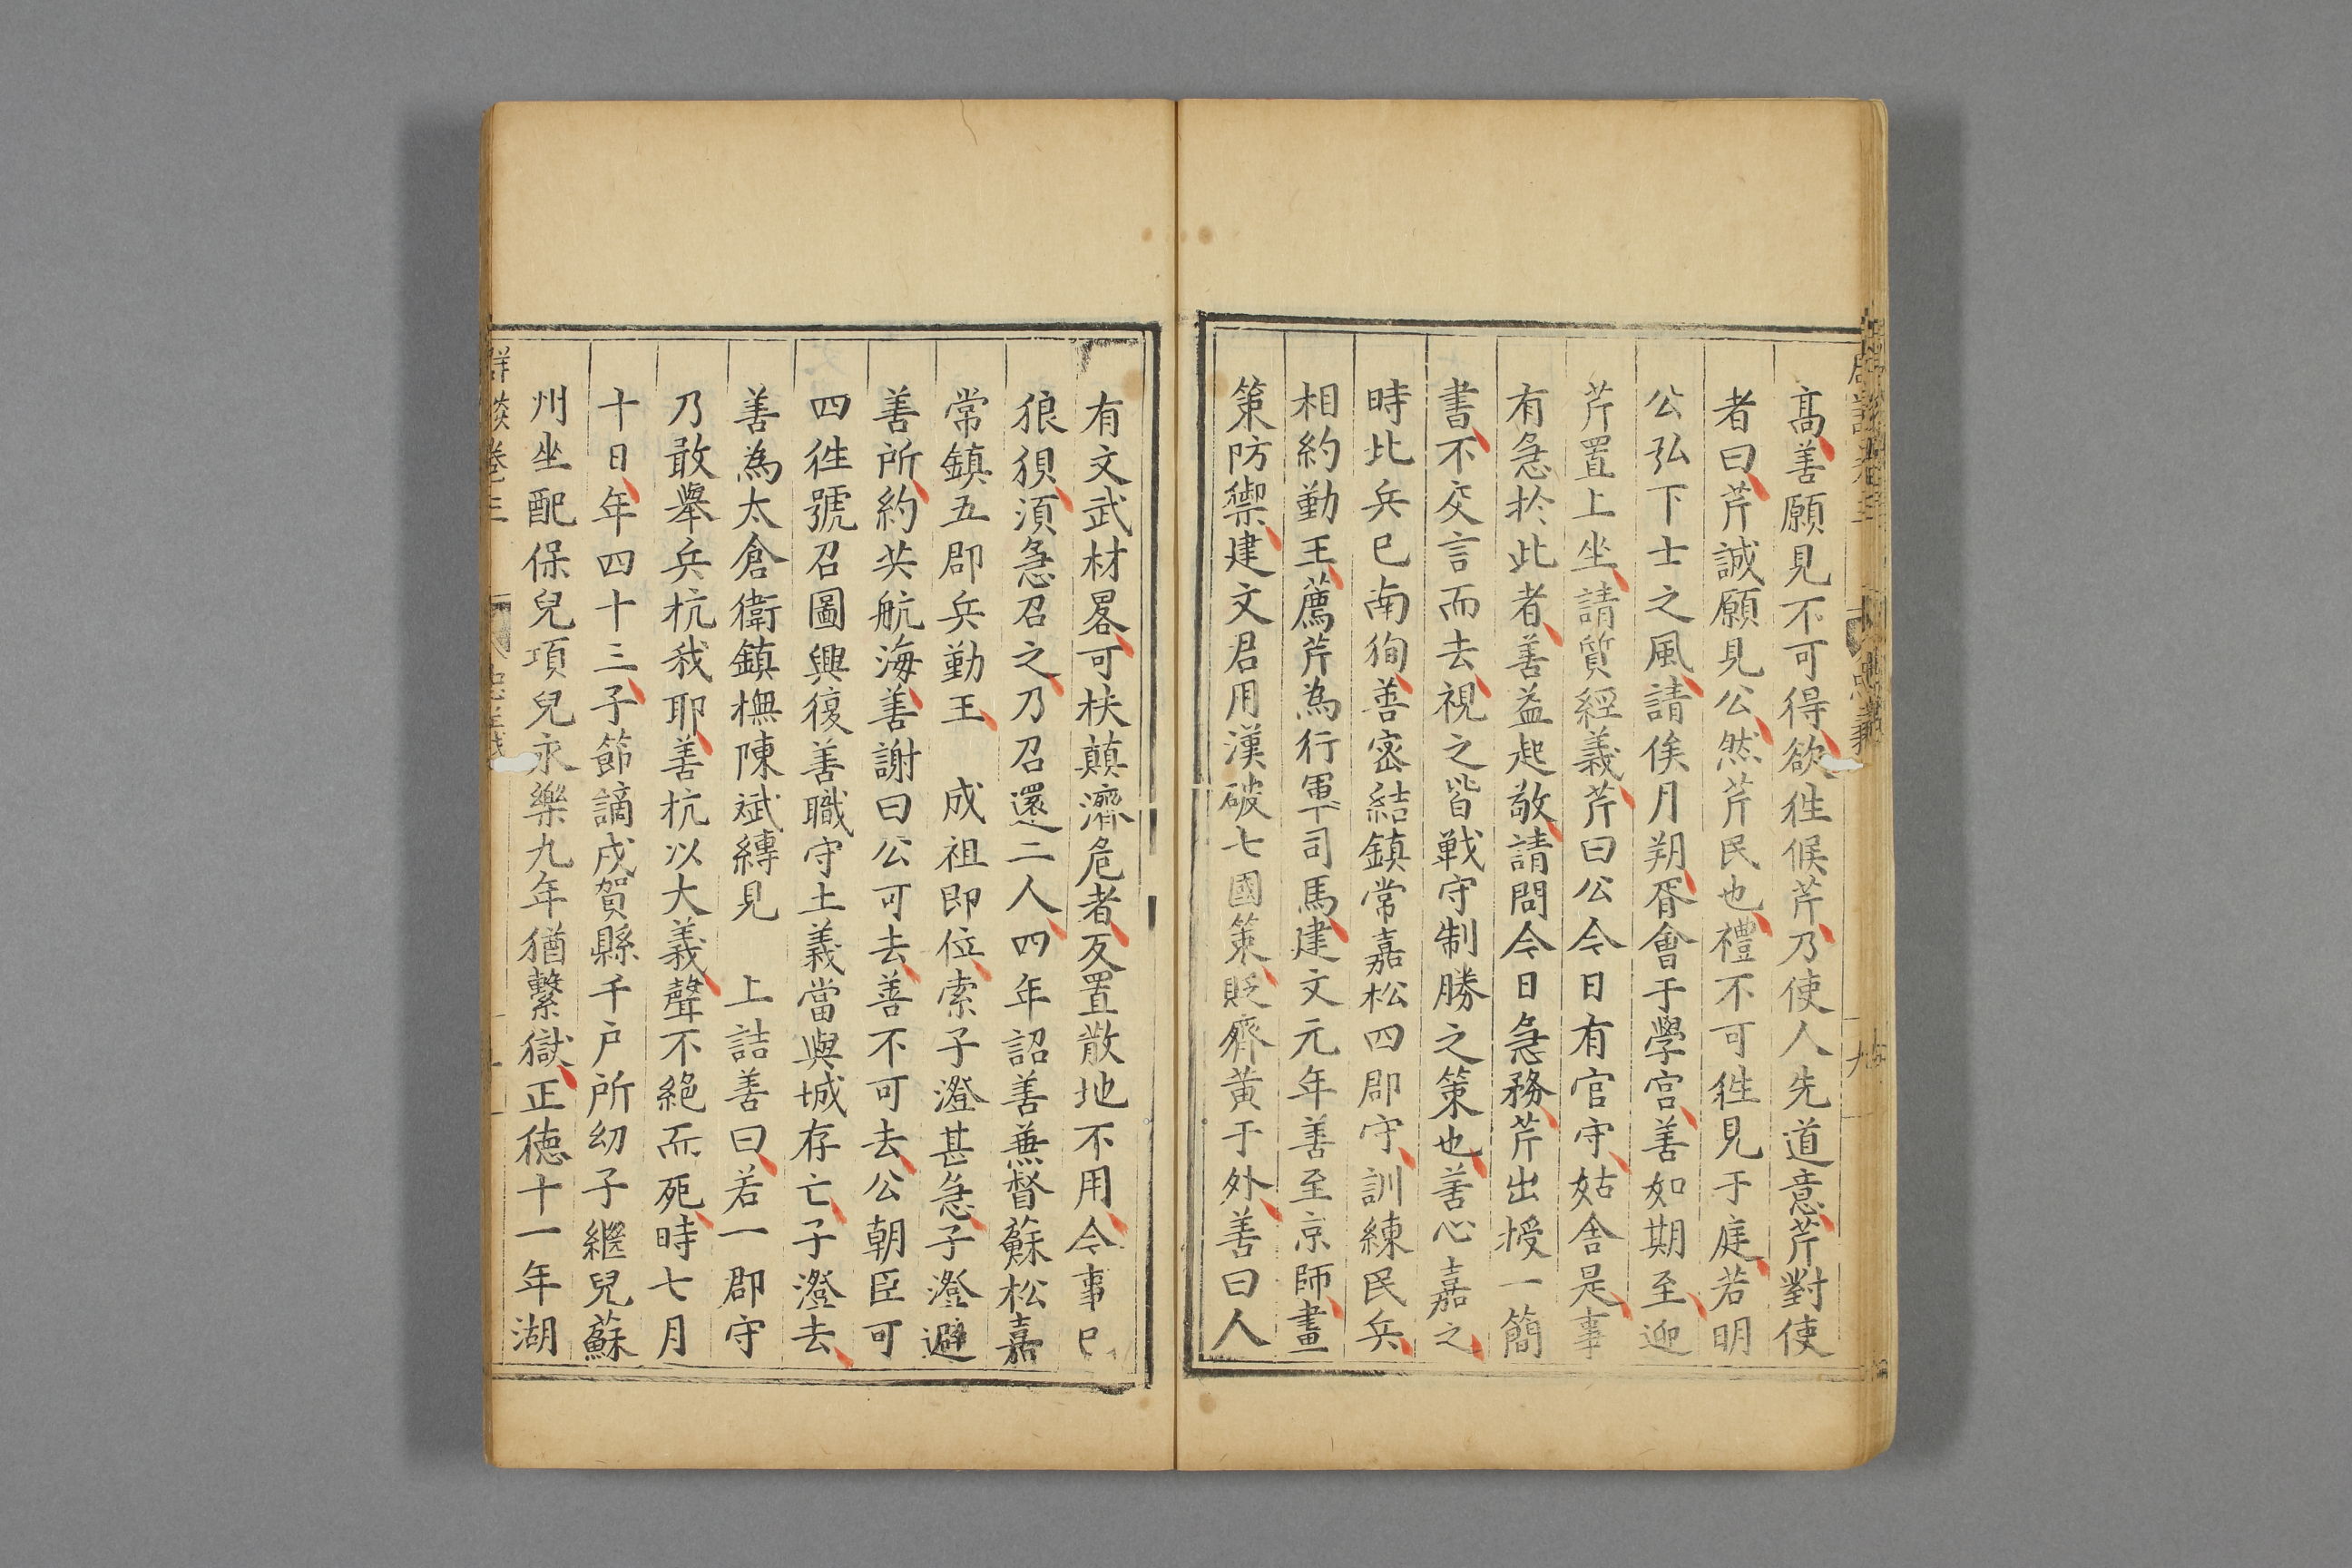 高善願見不可得欲徃候芹乃使人先道意芹對使
者曰芹誠願見公然芹民也禮不可徃見于庭若明
公弘下士之風請俟月朔胥會于學宮善如期至迎
芹置上坐請質經義芹曰公今日有官守姑舍是事
有急於此者善益起敬請問今日急務芹出授一簡
書不交言而去視之皆戦守制勝之策也善心嘉之
時比兵巳南狥善宻結鎮常嘉松四郡守訓練民兵
相約勤王薦芹為行軍司馬建文元年善至京師畫
策防禦建文君用漢破七國策貶齊黃于外善曰人
有文武材畧可扶顛濟危者反置散地不用今事巳
狼狽須急召之乃召還二人四年詔善兼督蘇松嘉
常鎮五郡兵勤王 成祖即位索子澄甚急子澄避
善所約共航海善謝曰公可去善不可去公朝臣可
四徃號召圖興復善職守土義當與城存亡子澄去
善為太倉衛鎮撫陳斌縳見 上詰善曰若一郡守
乃敢舉兵杭我耶善杭以大義聲不絕而死時七月
十日年四十三子節謫戍賀縣千户所幼子繼兒蘇
州坐配保兒項兒永樂九年猶繫獄正德十一年湖
群談卷三